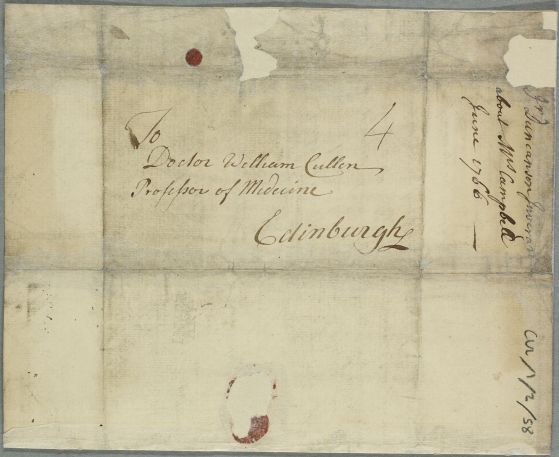 To
Doctor William Cullen
Professor of Medicine
Edinburgh
4
Dr Duncanson
about Mrs Campbell
June 1766
CUL/1/2/58